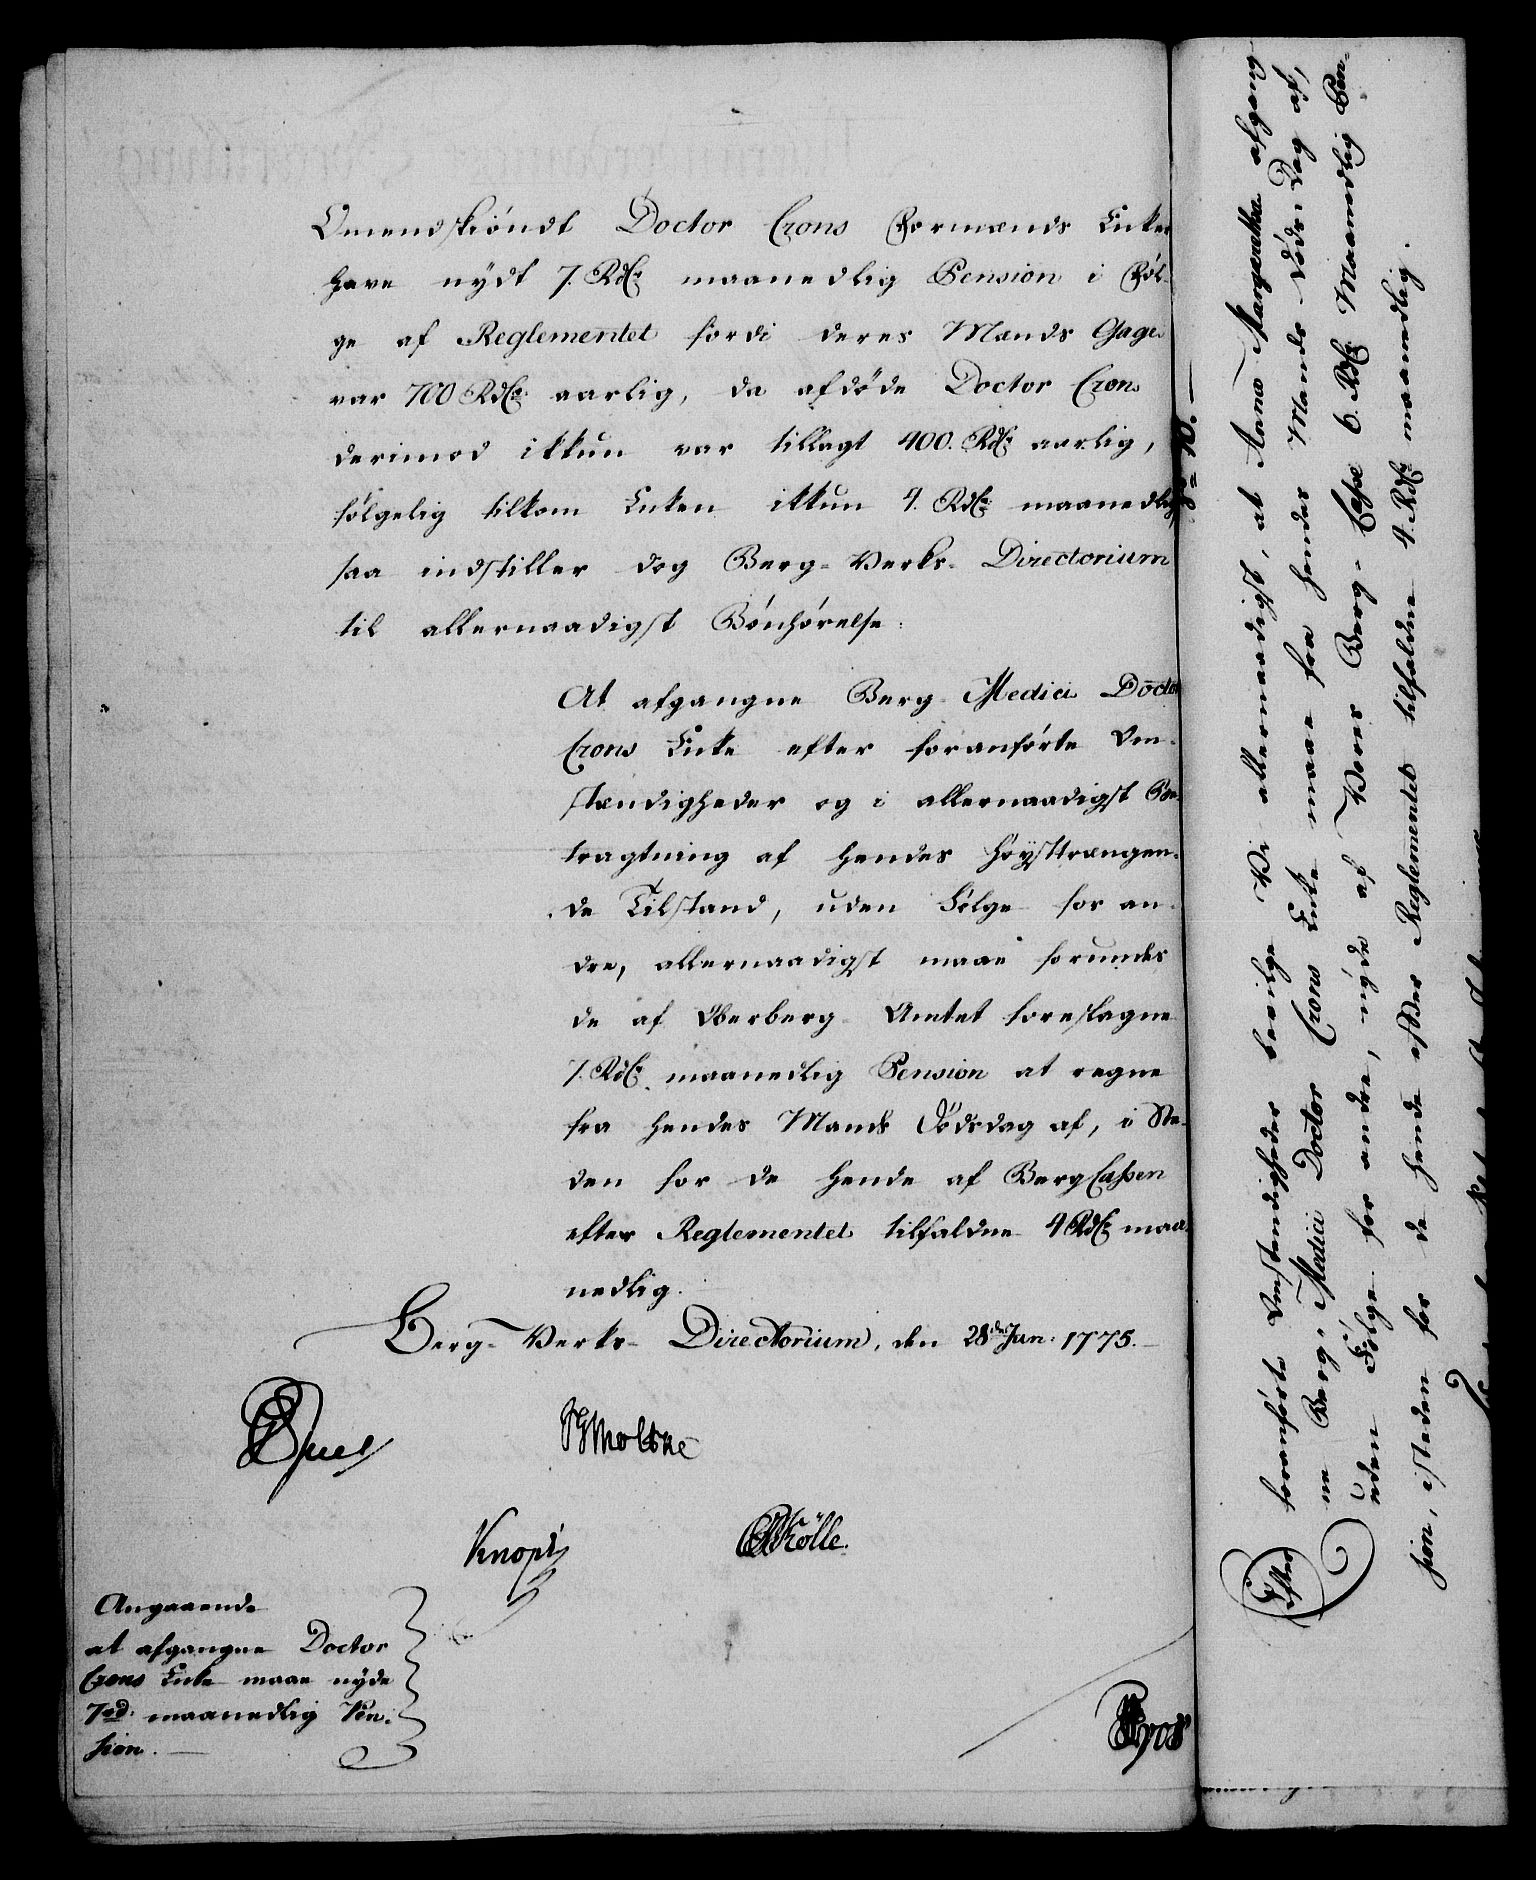 Omendskiøndt Doctor Crons Formænds Enker
have nydt 7. Rdlr maanedlig Pension i Føl-
ge af Reglementet fordi deres Mænds Gage
var 700 Rdlr aarlig, da afdøde Doctor Cron
derimod ikkun var tillagt 400. Rdlr aarlig,
følgelig tilkom Enken ikkun 4. Rdlr maanedlig
saa indstiller dog Berg-Verks-Directorium
til allernaadigst Bønhørelse:
At afgangne Berg-Medici Doctor
Crons Enke efter foranførte Om-
stændigheder og i allernaadigst Be-
tragtning af hendes høysttrængen-
de Tilstand, uden Følge for an-
dre, allernaadigst maae forundes
de af Oberberg-Amtet foreslagne
7. Rdlr maanedlig Pension at regne
fra hendes Mands Dødsdag af, i Ste-
den for de hende af BergCassen
efter Reglementet tilfaldne 4 Rdlr maa-
nedlig.
Berg-Verks-Directorium, den 28de Jun: 1775.
Juel
Moltke
Knoph
Krölle.
Angaaende
at afgangne Doctor
Crons Enke maae nyde
7 rd: maanedlig Pen-
sion.
Efter foranførte Omstændigheder bevilge Vi allernaadigst, at Anna Margaretha afgang-
ne Berg-Medici Doctor Crons Enke maae fra hendes Mands Døds-Dag af,
uden Følge for andre, nyde af Vores Berg-Casse 6. Rdlr Maanedlig Pen-
sion, isteden for de hende efter Reglementet tilfaldne 4. Rdlr maanedlig.